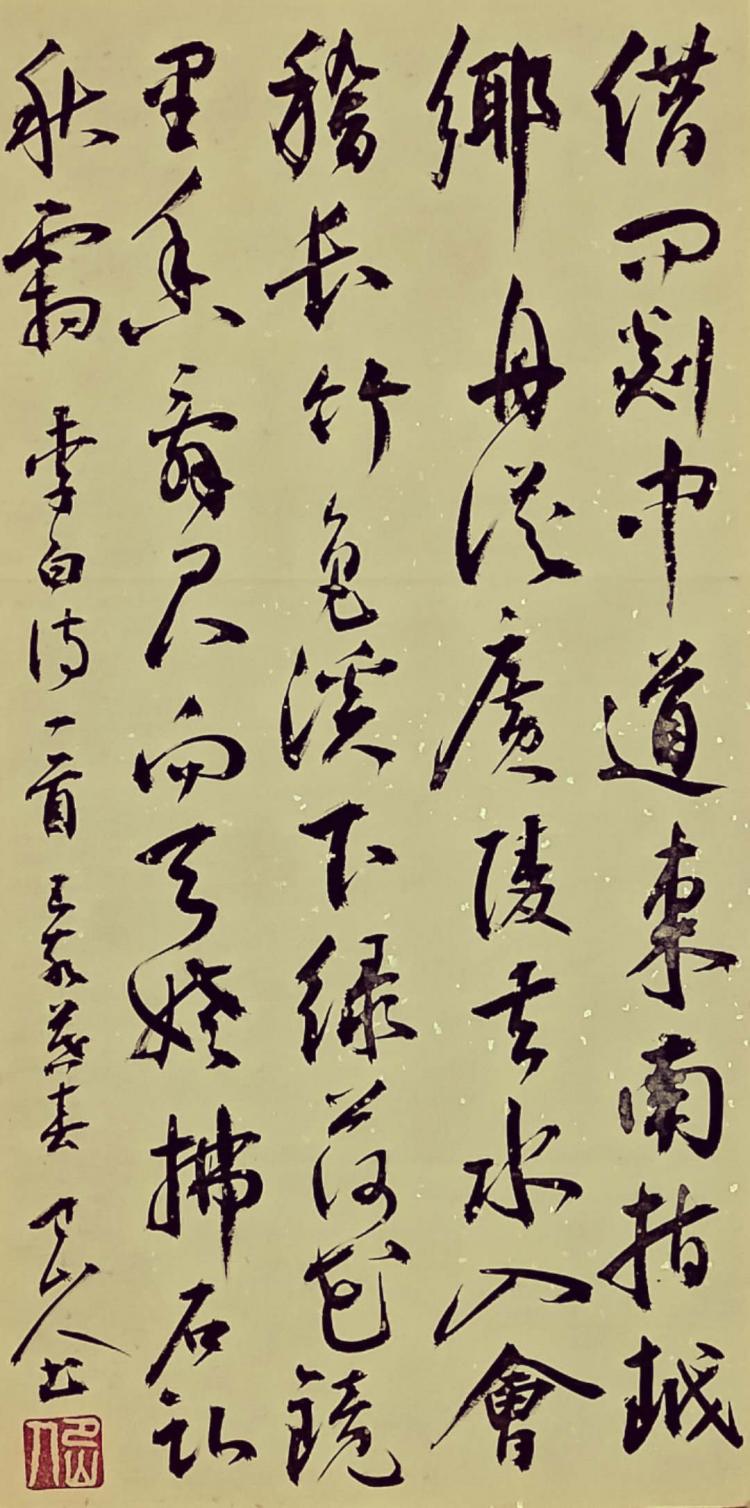 借問剡中道東南指越
鄉舟從廣陵去水入會
稽長竹色溪下綠荷花鏡
里香辭君向天姥拂石卧
秋霜 李白詩一首 春 山人书